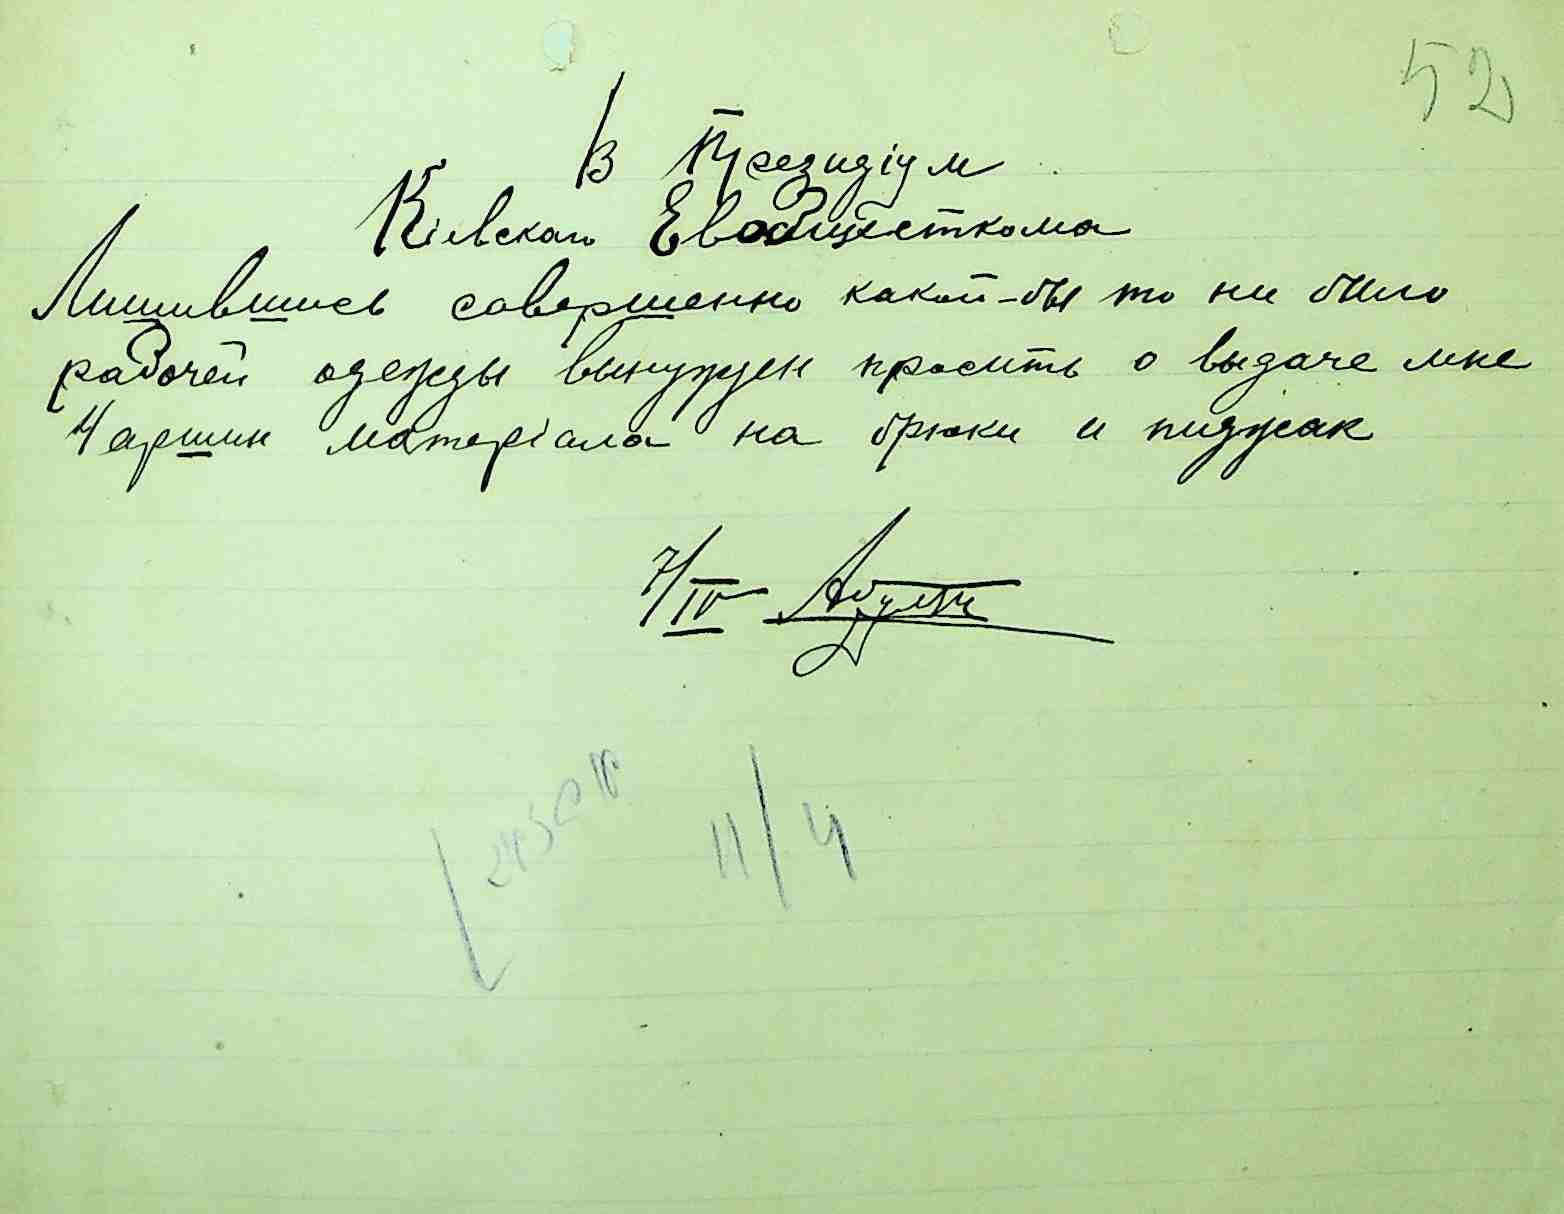 52
В Президіум
Кіевскаго Евобщесткома
Лишившись совершенно какой-бы то ни было
рабочей одежды вынужден просить о выдаче мне
4 аршин матеріала на брюки и пиджак
7/IV
11/4